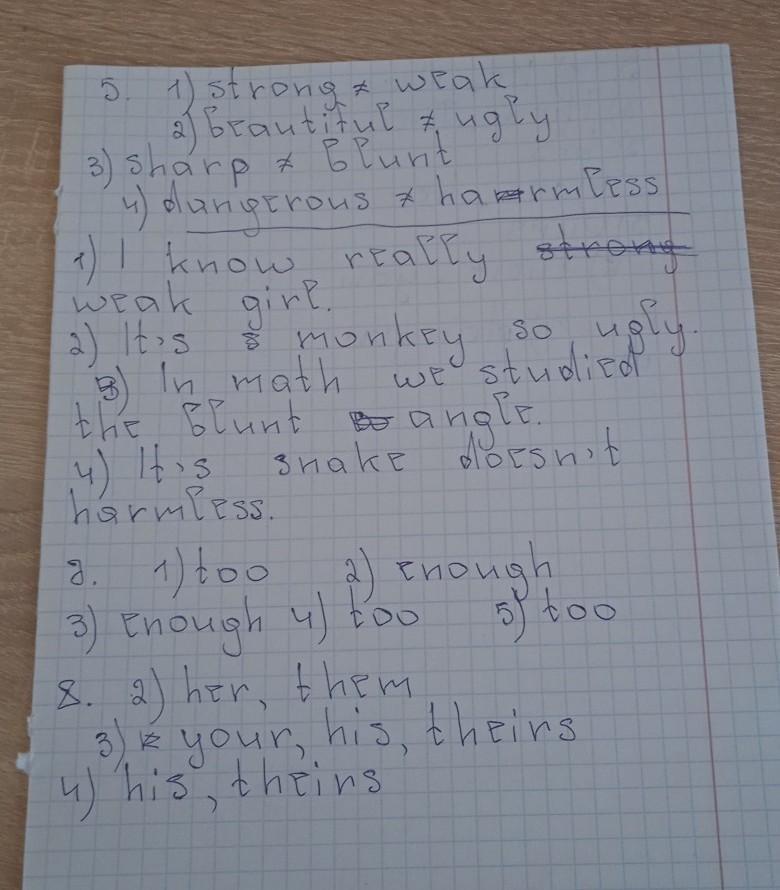 5. 1) strong ≠ weak
2) beautiful ≠ ugly
3) sharp ≠ blunt
4) dangerous ≠ harmless
1) I know really strong
weak girl.
2) It's monkey so ugly.
3) In math we studied
the blunt angle.
4) It's snake doesn't
harmless.
7. 1) too 2) enough
3) enough 4) too 5) too
8. 2) her, them
3) your, his, theirs
4) his, theirs